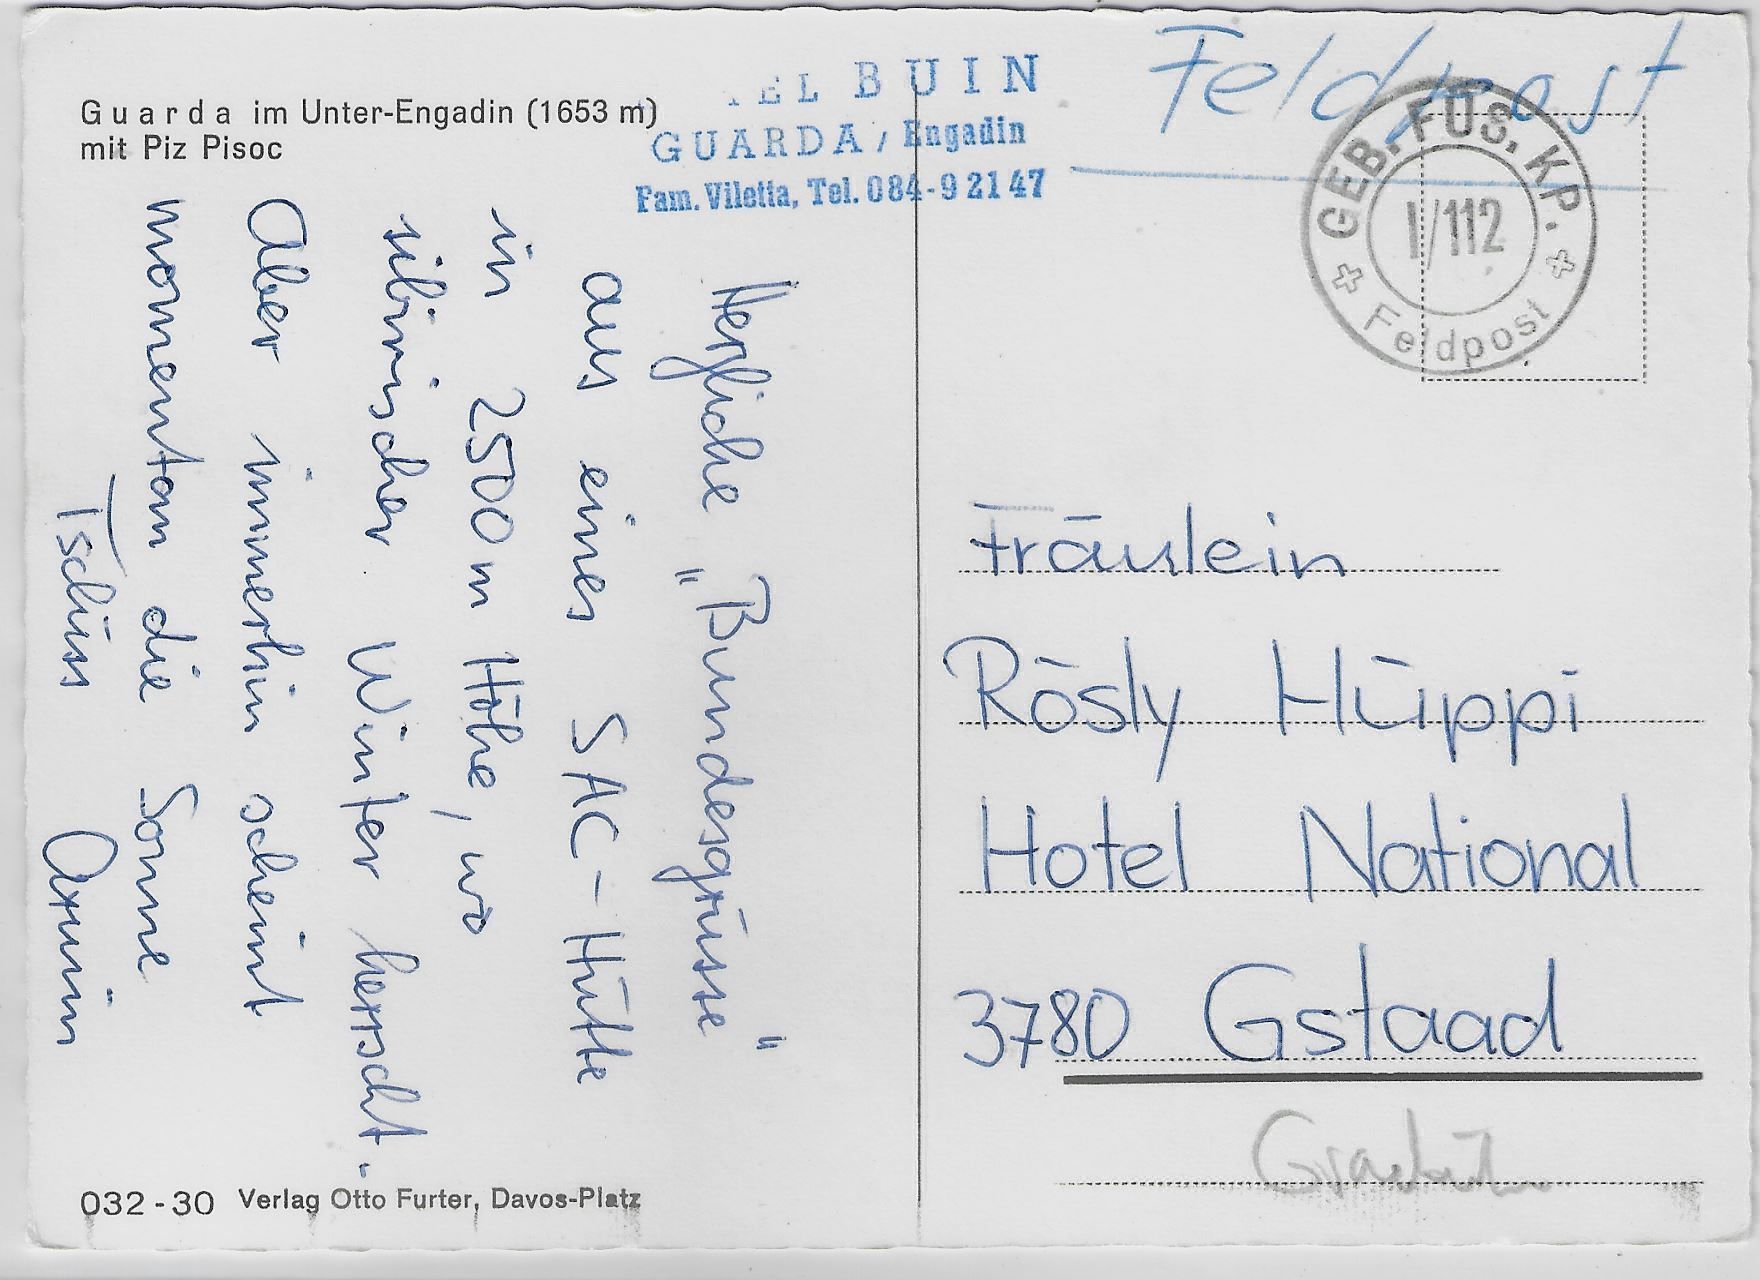 Guarda im Unter-Engadin (1653 m)
mit Piz Pisoc
EL BUIN
GUARDA / Engadin
Fam. Viletta, Tel. 084-9 21 47
Feldpost
GEB. FÜS. KP.
I/112
Feldpost
Herzliche "Bundesgrüsse"
aus einer SAC-Hütte
in 2500 m Höhe, wo
sibirischer Winter herrscht.
Aber immerhin scheint
momentan die Sonne
Tschüss Armin
Fräulein
Rösly Hüppi
Hotel National
3780 Gstaad
032-30 Verlag Otto Furter, Davos-Platz